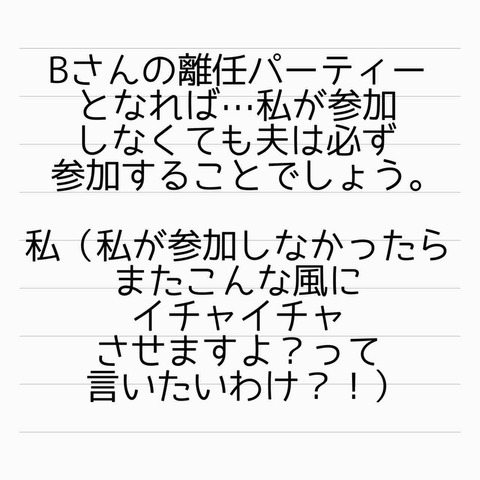 Bさんの離任パーティー
となれば…私が参加
しなくても夫は必ず
参加することでしょう。
私（私が参加しなかったら
またこんな風に
イチャイチャ
させますよ？って
言いたいわけ？！）